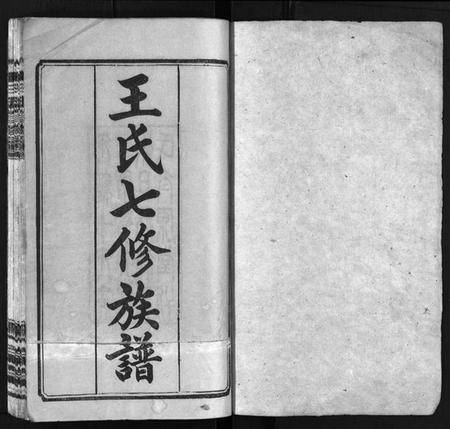 王氏七修族譜